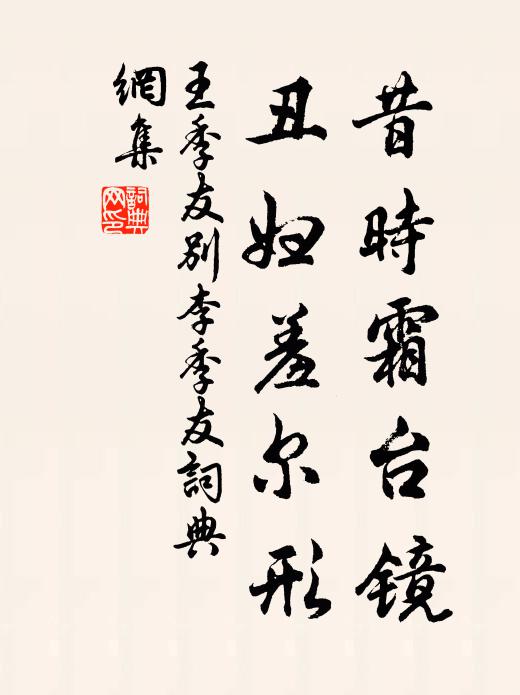 昔時霜台镜
丑妇羞尔形
王季友别李季友詞典
網集
詞典網印